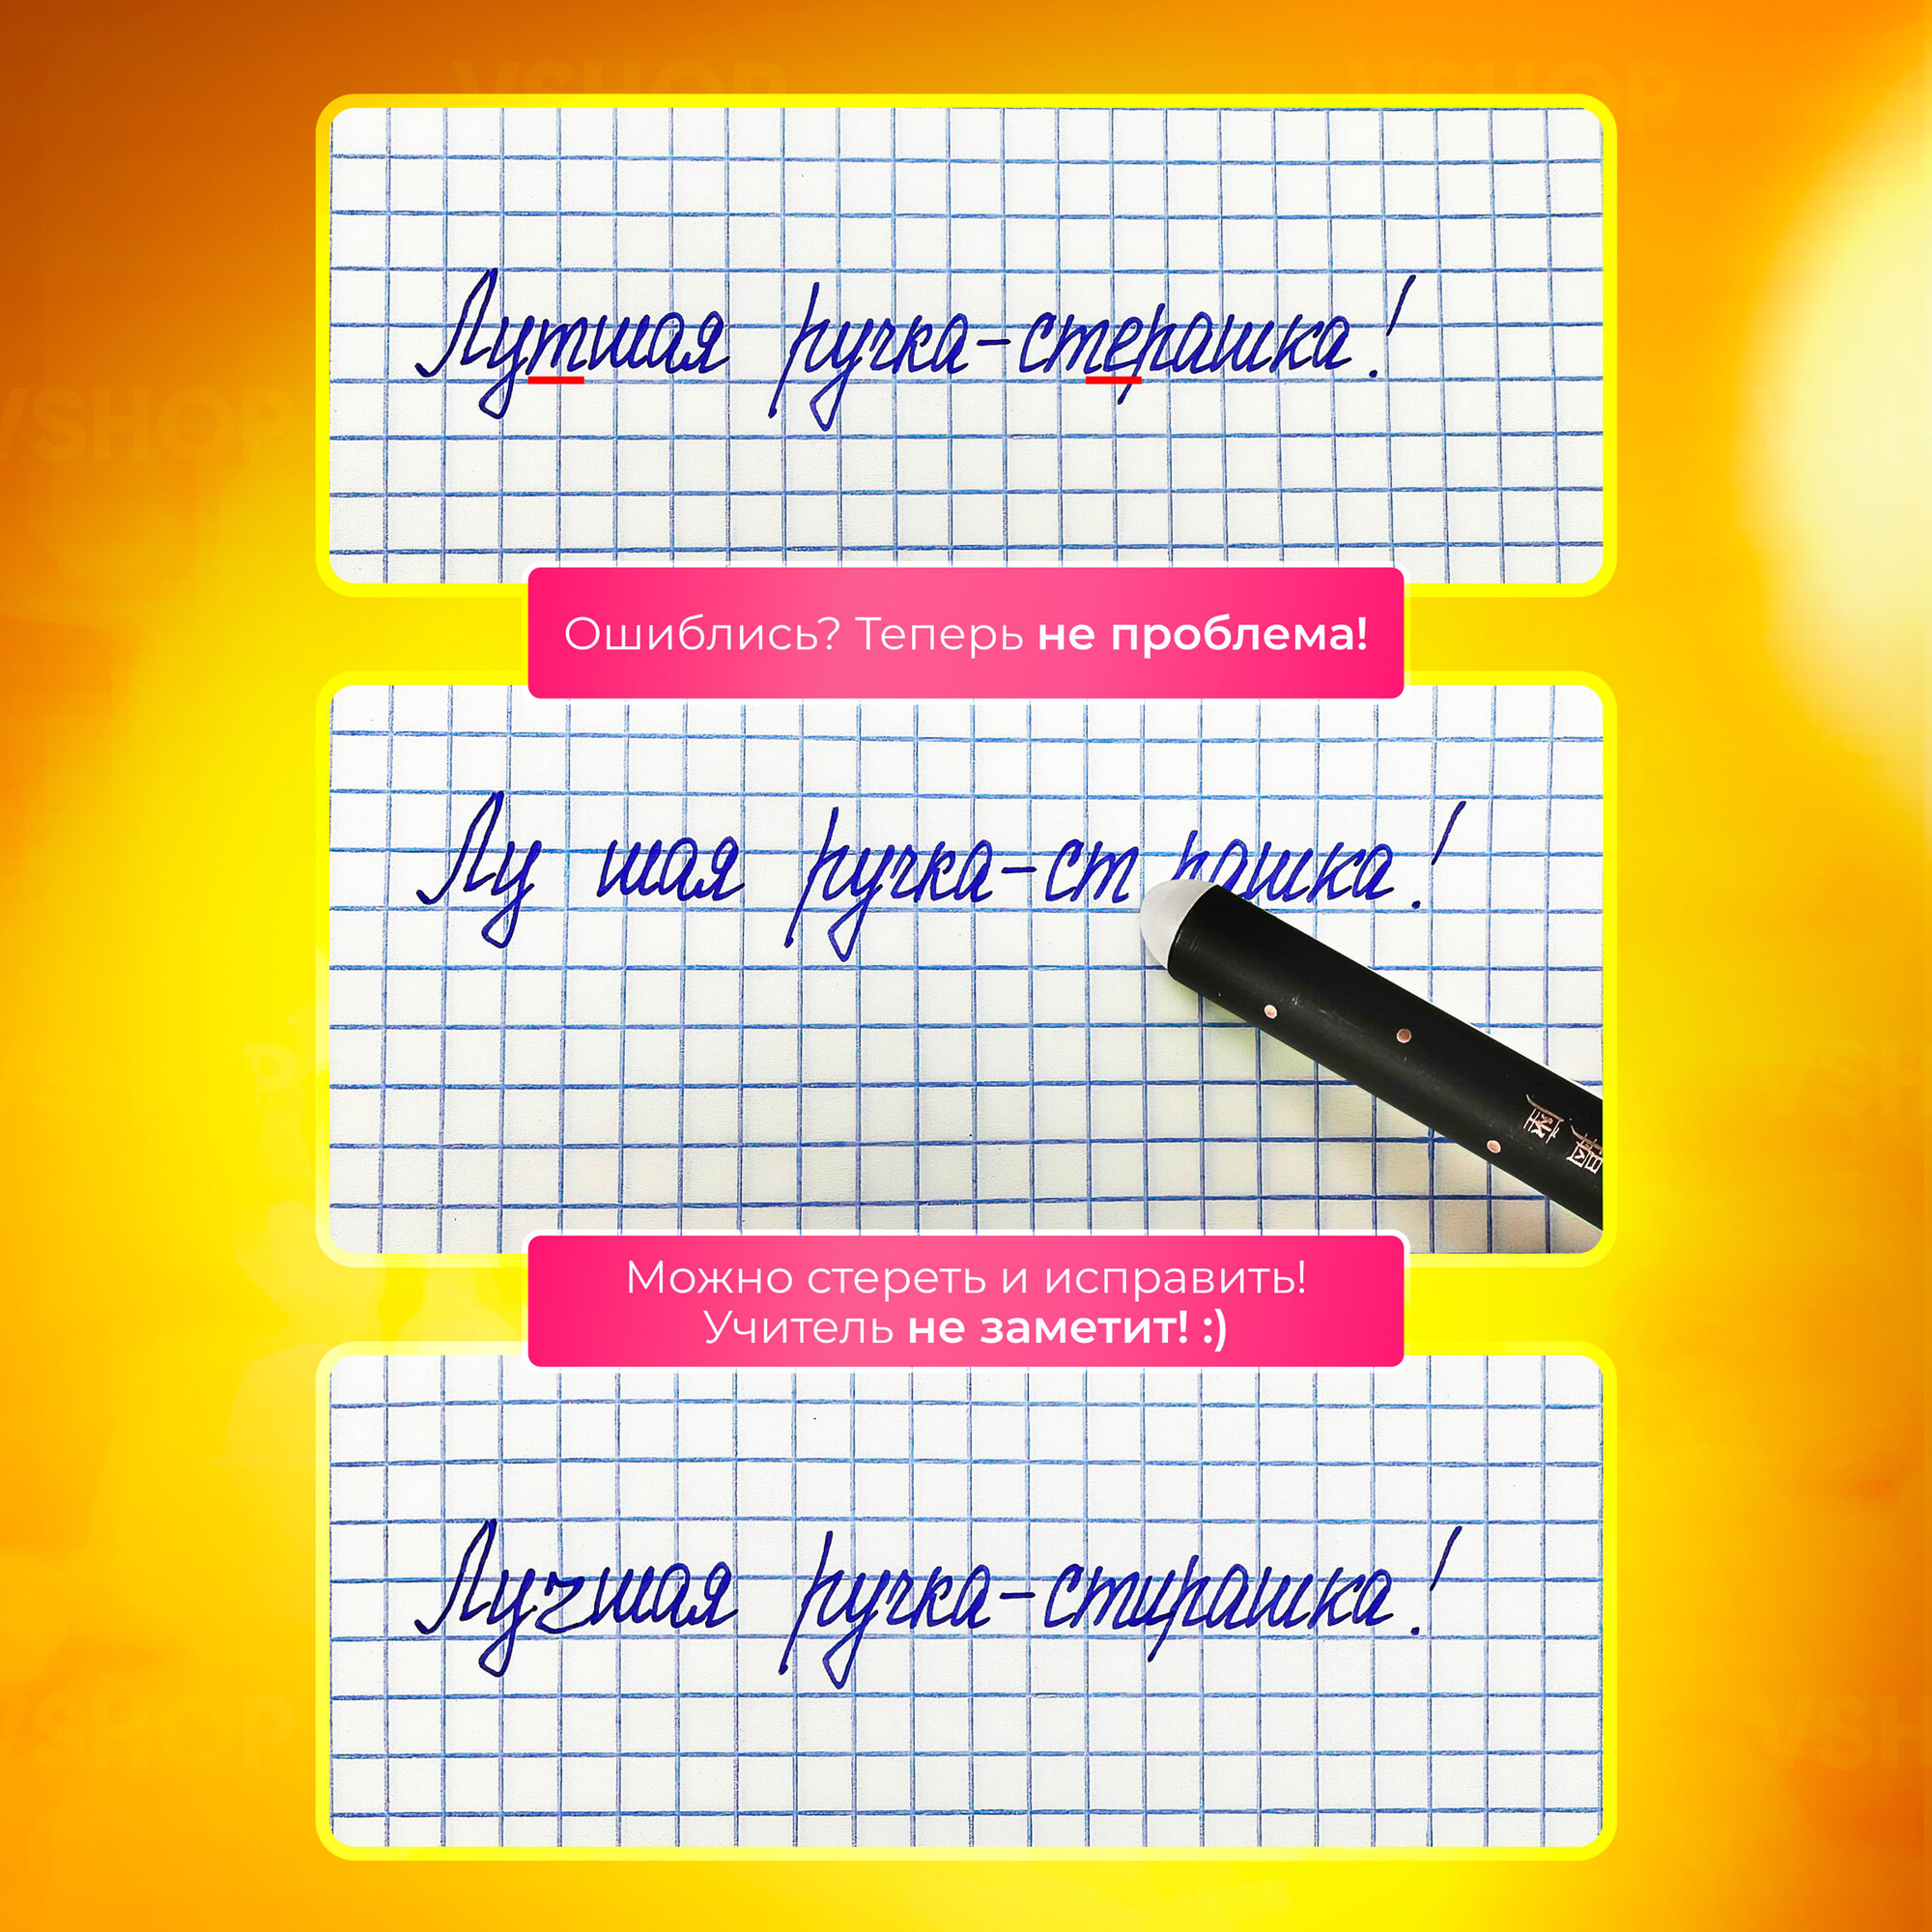 Лутшая ручка-стерашка!
Ошиблись? Теперь не проблема!
Лу шая ручка-ст рашка!
Можно стереть и исправить!
Учитель не заметит! :)
Лучшая ручка-стирашка!
VSHOP
VSHOP
VSHOP
VSHOP